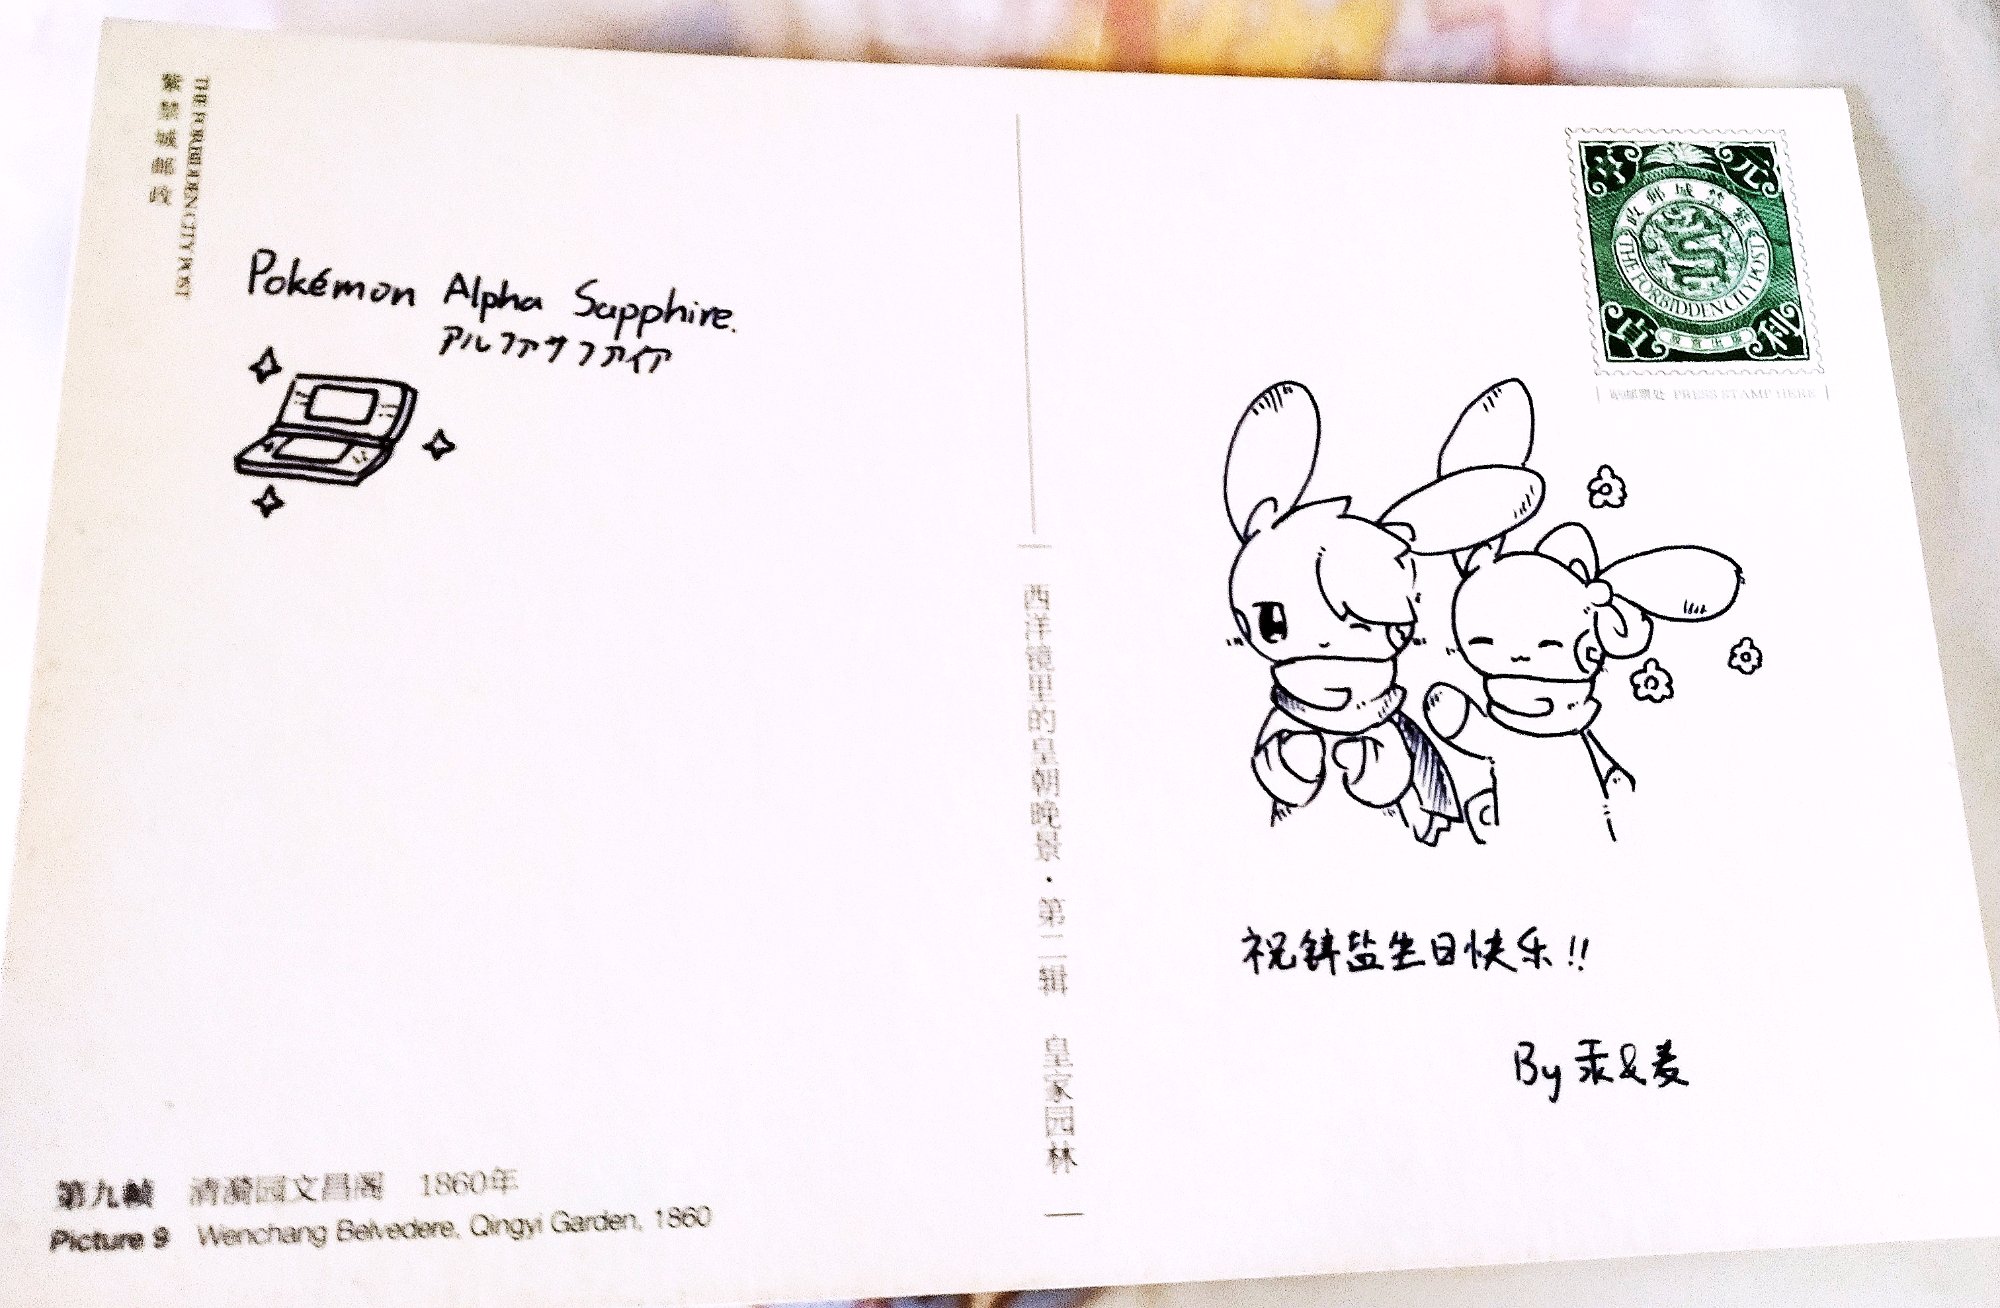 紫禁城邮政
THE FORBIDDEN CITY POST
Pokémon Alpha Sapphire.
アルファサファイア
第九帧 清漪园文昌阁 1860年
Picture 9 Wenchang Belvedere, Qingyi Garden, 1860
西洋镜里的皇朝晚景·第二辑 皇家园林
政邮城禁紫
THE FORBIDDEN CITY POST
大吉
元亨
利
贴邮票处 PRESS STAMP HERE
祝锌盐生日快乐!!
By 汞&麦